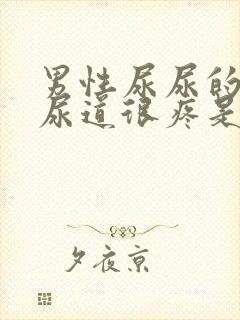 男性尿尿的
尿道很疼是
夕夜京